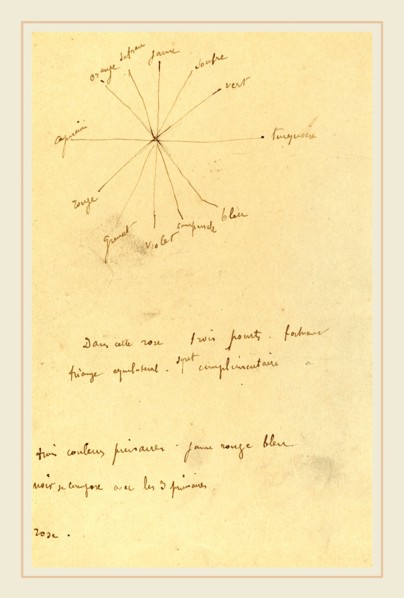 orange safran jaune soufre
vert
capucine
turquoise
rouge
grenat violet campanule bleu
Dans cette rose trois points. formant
triange equilateral. sont complimentaire
trois couleurs primaires. jaune rouge bleu
noir se compose avec les 3 primaires
rose.